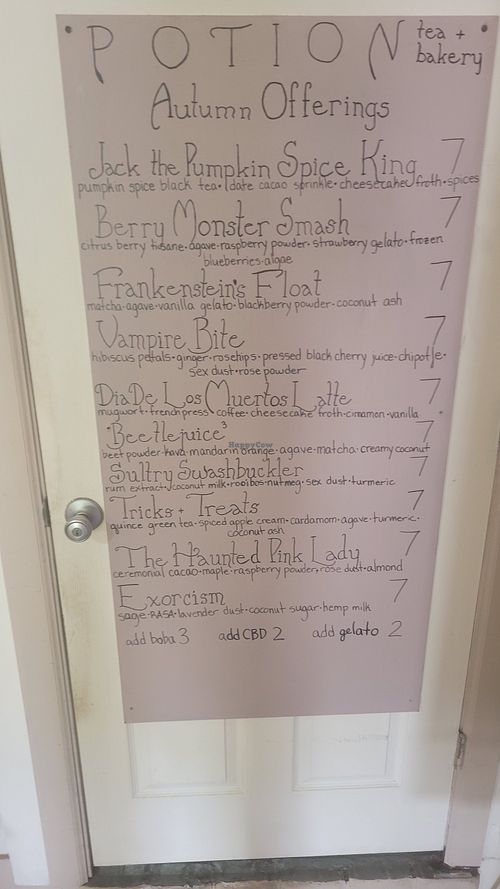 POTION tea +
bakery
Autumn Offerings
Jack the Pumpkin Spice King 7
pumpkin spice black tea · date cacao sprinkle · cheesecake froth · spices
Berry Monster Smash 7
citrus berry tisane · agave · raspberry powder · strawberry gelato · frozen
blueberries · algae
Frankenstein's Float 7
matcha · agave · vanilla gelato · blackberry powder · coconut ash
Vampire Bite 7
hibiscus petals · ginger · rosehips · pressed black cherry juice · chipotle ·
sex dust · rose powder
Dia De Los Muertos Latte 7
mugwort · french press coffee · cheesecake froth · cinnamon · vanilla
Beetlejuice³ 7
HappyCow
beet powder · kava · mandarin orange · agave · matcha · creamy coconut
Sultry Swashbuckler 7
rum extract · coconut milk · rooibos · nutmeg · sex dust · turmeric
Tricks + Treats 7
quince green tea · spiced apple cream · cardamom · agave · turmeric ·
coconut ash
The Haunted Pink Lady 7
ceremonial cacao · maple · raspberry powder, rose dust · almond
Exorcism 7
sage · RASA · lavender dust · coconut sugar · hemp milk
add boba 3 add CBD 2 add gelato 2